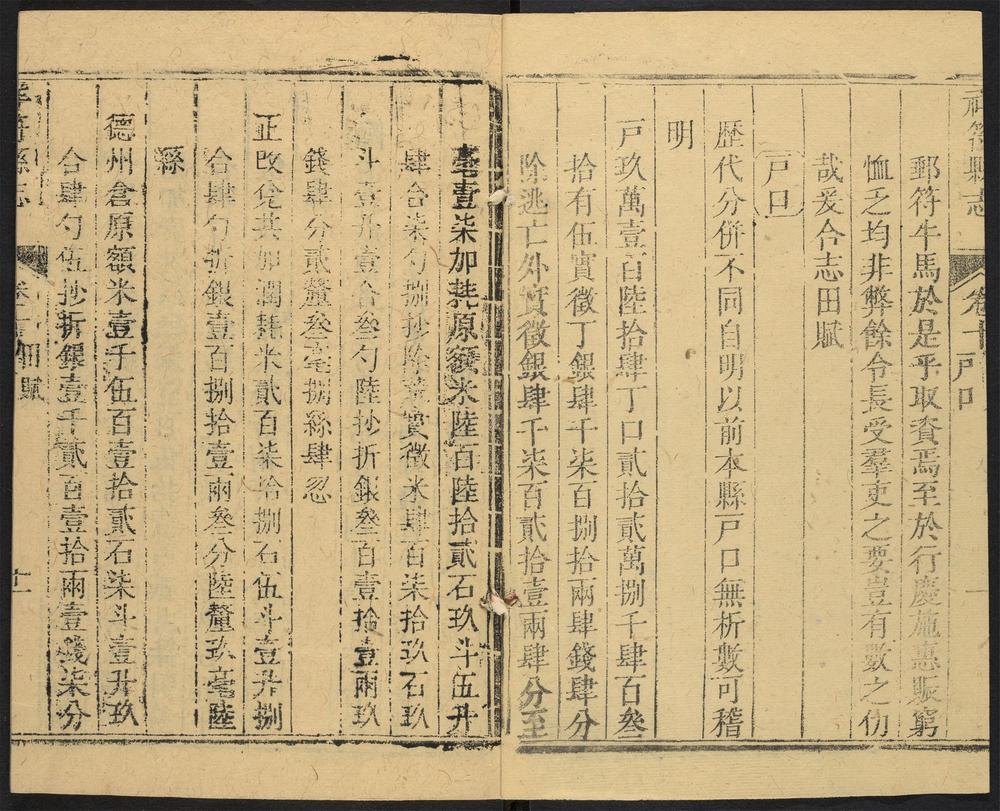 祥符縣志 卷十 戶口 一
郵符牛馬於是乎取資焉至於行慶施惠賑窮
恤乏均非弊餘令長受羣吏之要豈有數之仂
哉爰合志田賦
戶口
歷代分併不同自明以前本縣戶口無析數可稽
明
戶玖萬壹百陸拾肆丁口貳拾貳萬捌千肆百叄
拾有伍實徵丁銀肆千柒百捌拾兩肆錢肆分
除逃亡外實徵銀肆千柒百貳拾壹兩肆分至
毫壹柒加耗原額米陸百陸拾貳石玖斗伍升
肆合柒勺捌抄除荒實徵米肆百柒拾玖石玖
斗壹升壹合叄勺陸抄折銀叄百壹拾壹兩玖
錢肆分貳釐叄毫捌絲肆忽
正改兊共加潤耗米貳百柒拾捌石伍斗壹升捌
合肆勺折銀壹百捌拾壹兩叄分陸釐玖毫陸
絲
德州倉原額米壹千伍百壹拾貳石柒斗壹升玖
合肆勺伍抄折銀壹千貳百壹拾兩壹錢柒分
符縣志 田賦